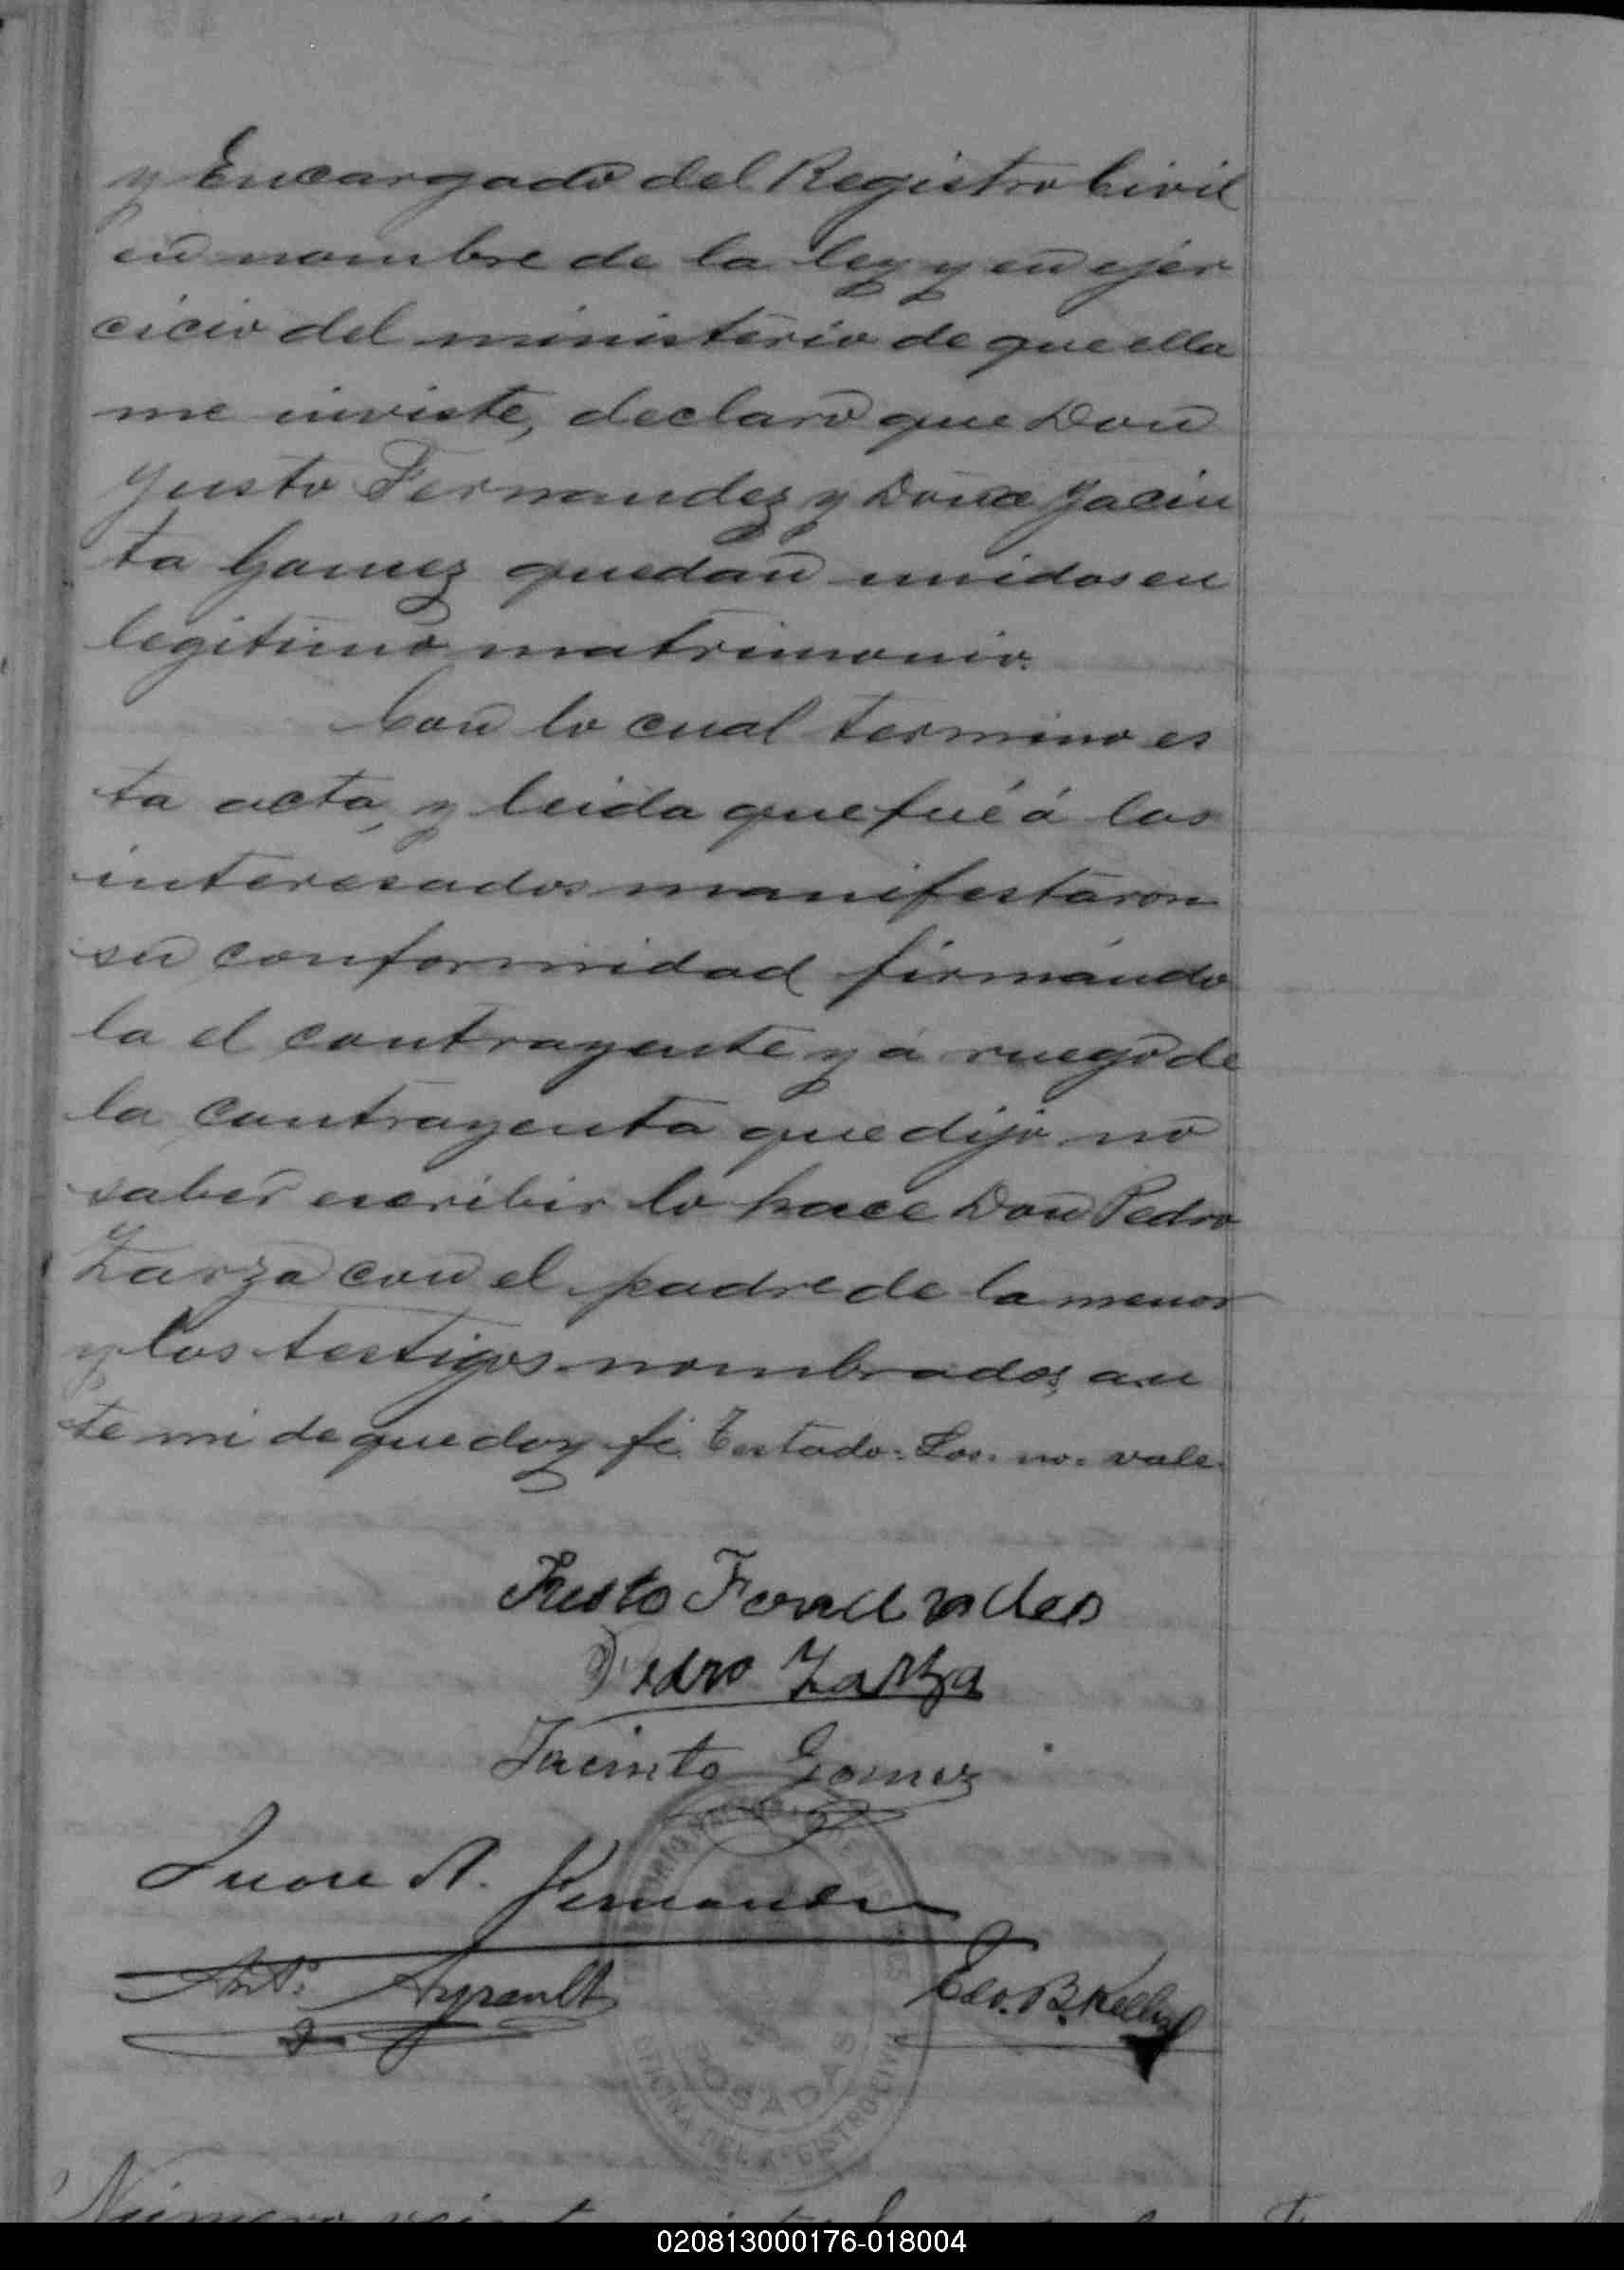 y Encargado del Registro Civil
en nombre de la ley y en ejer
cicio del ministerio de que ella
me inviste, declaro que Don
Justo Fernandez y Doña Jacin
ta Gomez quedan unidos en
legitimo matrimonio.
Con lo cual termino es
ta acta, y leida que fué á los
interesados manifestaron
su conformidad firmándo
la el contrayente y á ruego de
la contrayenta que dijo no
saber escribir lo hace Don Pedro
Zarza con el padre de la menor
y los testigos nombrados, an
te mi de que doy fé. Testado: Los: no: vale.
Justo
Pedro Zarza
Jacinto Gomez
A. Fernandez
Ant.º Ayrault
B.
POSADAS
OFICINA DEL REGISTRO CIVIL
Número
020813000176-018004